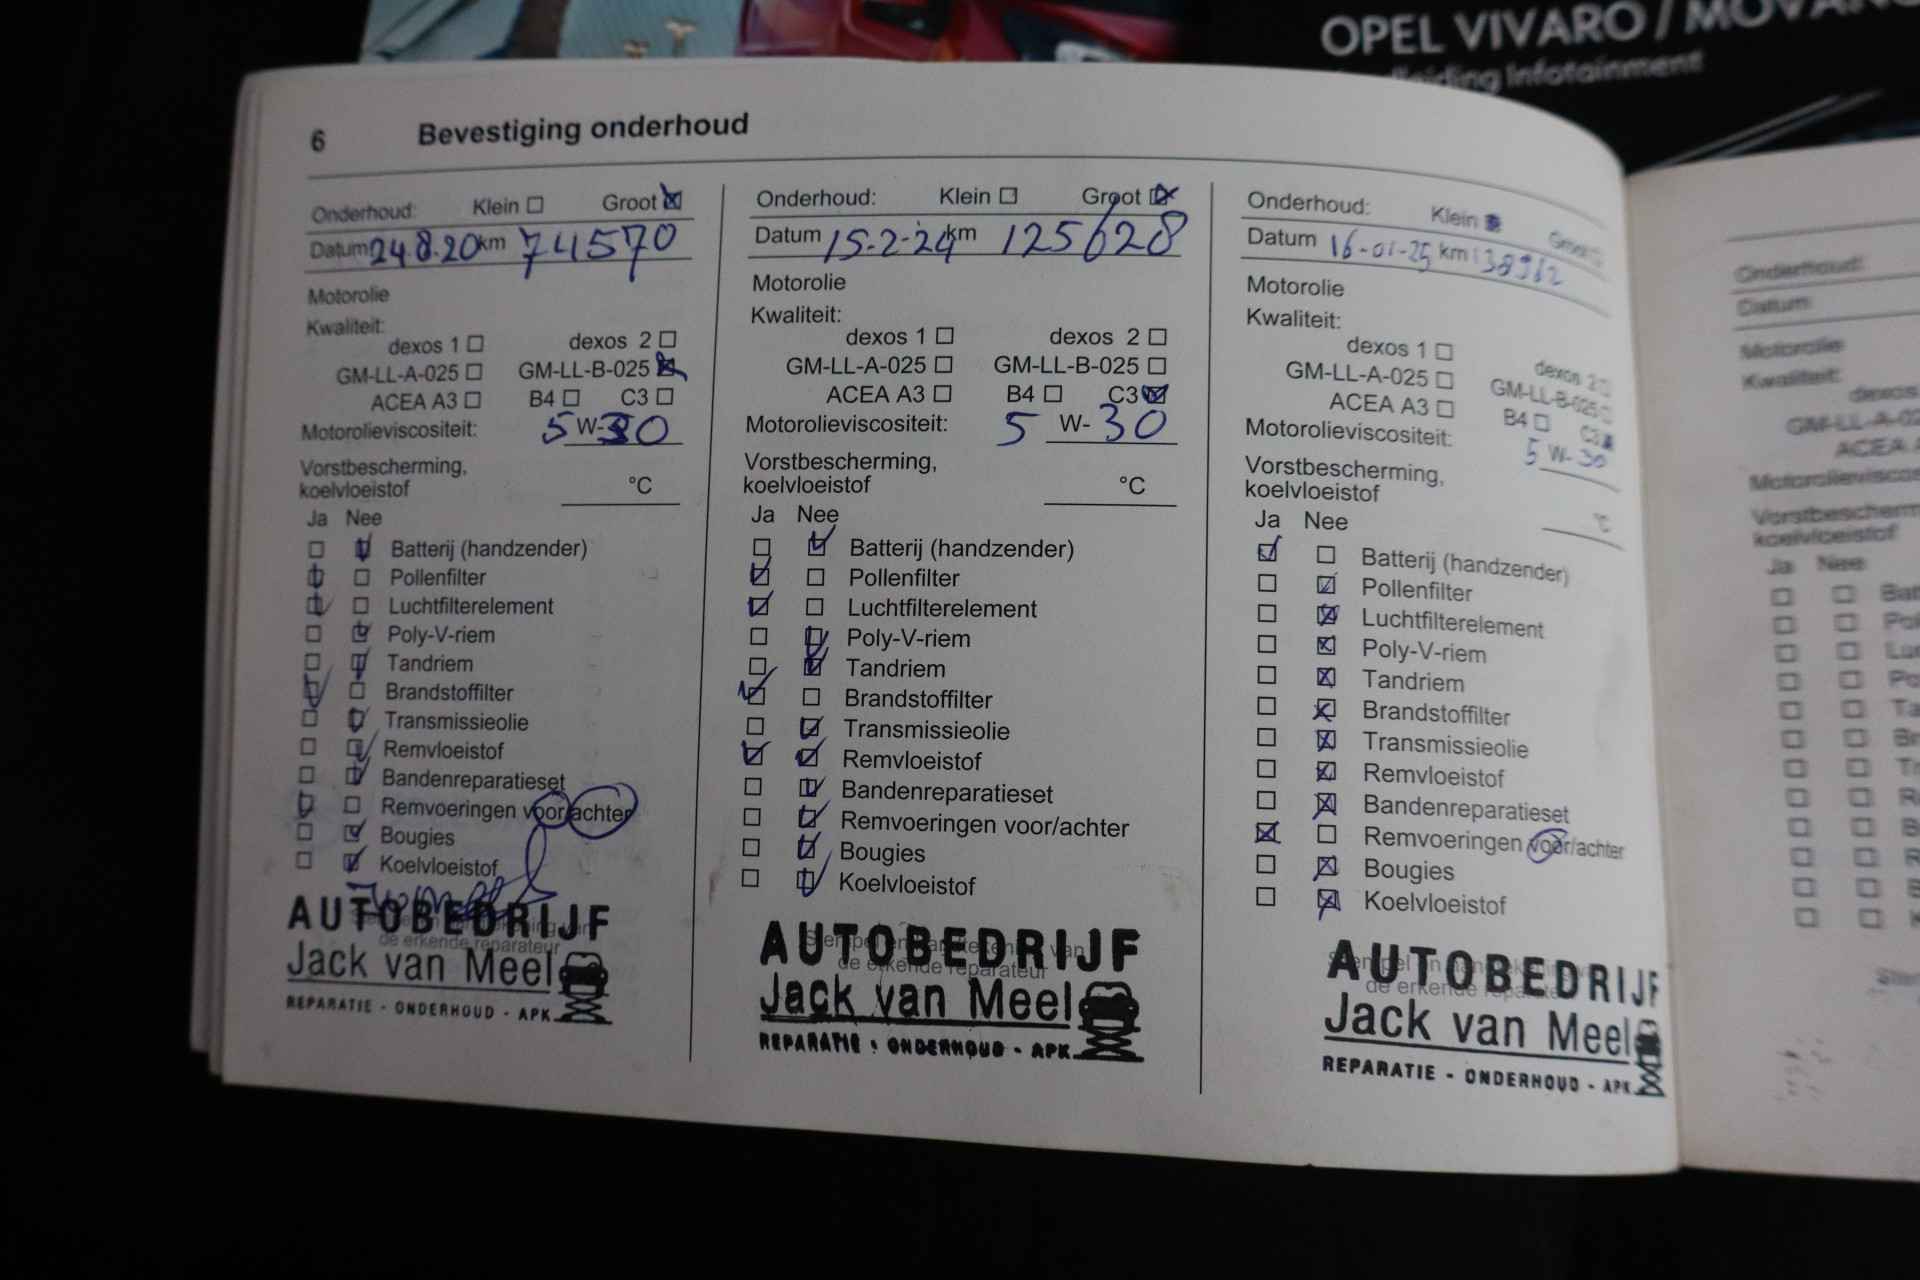 OPEL VIVARO / MOVANO
Handleiding Infotainment
6 Bevestiging onderhoud
Onderhoud: Klein Groot
Datum 24.8.20 km 74570
Motorolie
Kwaliteit:
dexos 1 dexos 2
GM-LL-A-025 GM-LL-B-025
ACEA A3 B4 C3
Motorolieviscositeit: 5 W-30
Vorstbescherming,
koelvloeistof °C
Ja Nee
Batterij (handzender)
Pollenfilter
Luchtfilterelement
Poly-V-riem
Tandriem
Brandstoffilter
Transmissieolie
Remvloeistof
Bandenreparatieset
Remvoeringen voor/achter
Bougies
Koelvloeistof
de erkende reparateur
AUTOBEDRIJF
Jack van Meel
REPARATIE - ONDERHOUD - APK
Onderhoud: Klein Groot
Datum 15-2-24 km 125628
Motorolie
Kwaliteit:
dexos 1 dexos 2
GM-LL-A-025 GM-LL-B-025
ACEA A3 B4 C3
Motorolieviscositeit: 5 W- 30
Vorstbescherming,
koelvloeistof °C
Ja Nee
Batterij (handzender)
Pollenfilter
Luchtfilterelement
Poly-V-riem
Tandriem
Brandstoffilter
Transmissieolie
Remvloeistof
Bandenreparatieset
Remvoeringen voor/achter
Bougies
Koelvloeistof
Stempel en handtekening van
de erkende reparateur
AUTOBEDRIJF
Jack van Meel
REPARATIE - ONDERHOUD - APK
Onderhoud: Klein Groot
Datum 16-01-25 km 138962
Motorolie
Kwaliteit:
dexos 1 dexos 2
GM-LL-A-025 GM-LL-B-025
ACEA A3 B4 C3
Motorolieviscositeit: 5 W- 30
Vorstbescherming,
koelvloeistof °C
Ja Nee
Batterij (handzender)
Pollenfilter
Luchtfilterelement
Poly-V-riem
Tandriem
Brandstoffilter
Transmissieolie
Remvloeistof
Bandenreparatieset
Remvoeringen voor/achter
Bougies
Koelvloeistof
Stempel en
de erkende
AUTOBEDRIJF
Jack van Meel
REPARATIE - ONDERHOUD - APK
Onderhoud:
Datum
Motorolie
Kwaliteit:
dexos
GM-LL-A-02
ACEA A
Motorolieviscos
Vorstbescherm
koelvloeistof
Ja Nee